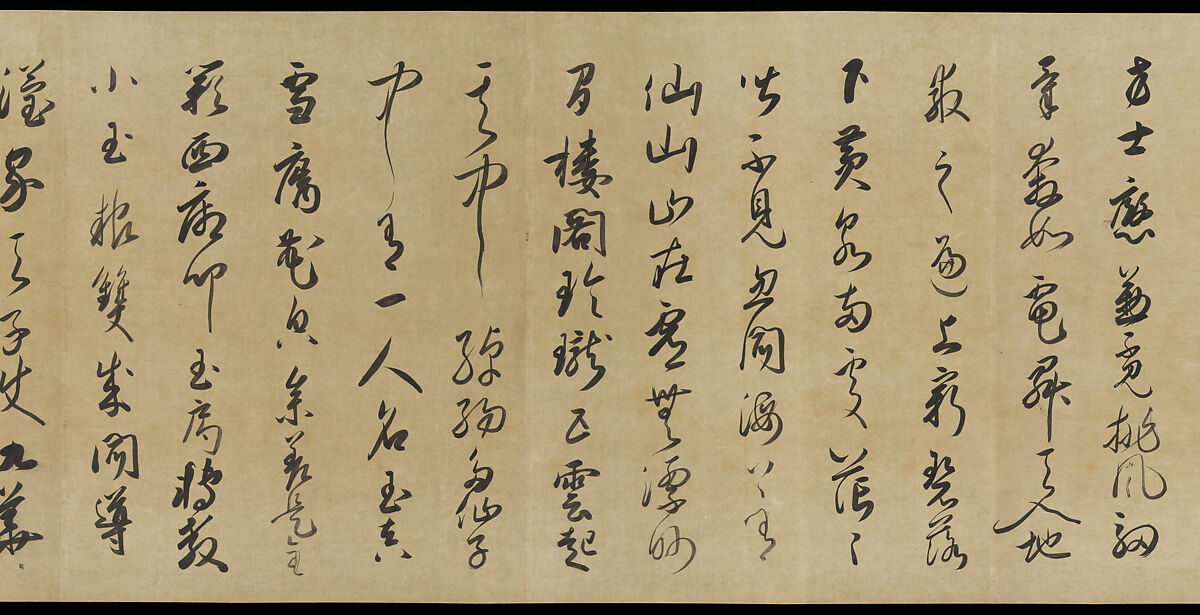 方士慇懃覓排風馭
氣奔如電昇天入地
求之遍上窮碧落
下黃泉兩處茫〻
皆不見忽聞海上有
仙山山在虛無漂眇
間樓閣玲瓏五雲起
其中綽約多仙子
中有一人名玉真
雪膚花貌參差是金
闕西廂叩玉扃轉教
小玉報雙成聞道
漢家天子使九華